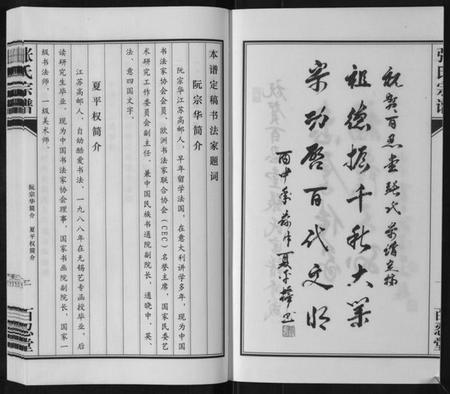 張氏宗譜
百忍堂
祝賀百忍堂張氏宗譜定稿
祖德振千秋大業
宗功啓百代文明
丙申年
夏平權書
本谱定稿书法家题词
阮宗华简介
阮宗华江苏高邮人，早年留学法国，在意大利讲学多年，现为中国
书法家协会会员、欧洲书法家联合协会（CEC）名誉主席，国家民委艺
术研究工作委员会副主任，兼中国民族书道院副院长，通晓中、英、
法、意四国文字。
夏平权简介
江苏高邮人，自幼酷爱书法，一九八八年在无锡艺专函授毕业，后
读研究生毕业，现为中国书法家协会理事，国家书画院副院长，国家一
级书法师，一级美术师。
张氏宗谱
阮宗华简介 夏平权简介
百忍堂